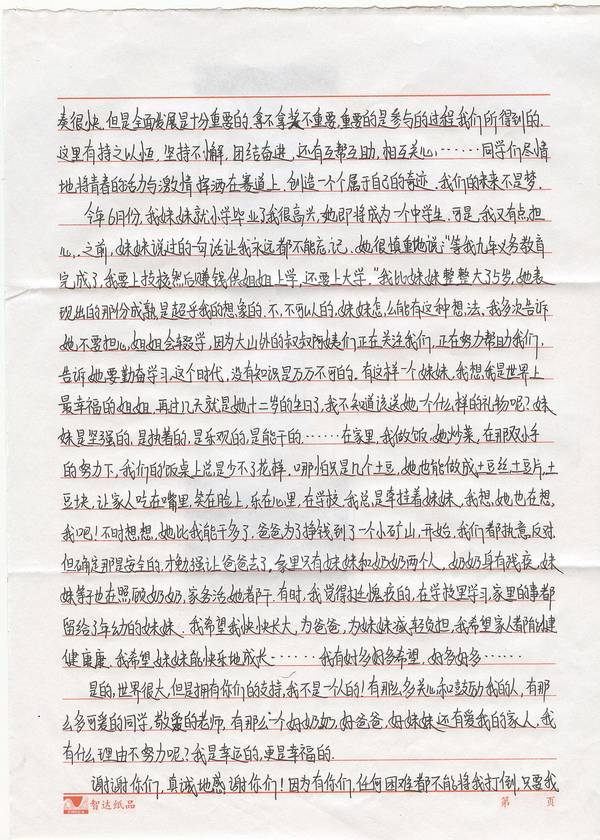 奏很快,但是全面发展是十分重要的,拿不拿奖不重要,重要的是参与的过程我们所得到的.
这里有持之以恒,坚持不懈,团结奋进,还有互帮互助,相互关心,……同学们尽情
地将青春的活力与激情挥洒在赛道上,创造一个个属于自己的奇迹,我们的未来不是梦.
今年6月份,我妹妹就小学毕业了我很高兴,她即将成为一个中学生,可是,我又有点担
心,之前,妹妹说过的一句话让我永远都不能忘记.她很慎重地说:"等我九年义务教育
完成了,我要上技校然后赚钱供姐姐上学,还要上大学."我比妹妹整整大了5岁,她表
现出的那份成熟是超乎我的想象的,不,不可以的,妹妹怎么能有这种想法,我多次告诉
她,不要担心,姐姐会辍学,因为大山外的叔叔阿姨们正在关注我们,正在努力帮助我们,
告诉她,要勤奋学习,这个时代,没有知识是万万不可的.有这样一个妹妹,我想我是世界上
最幸福的姐姐,再过几天就是她十二岁的生日了,我不知道该送她一个什么样的礼物呢?妹
妹是坚强的,是执着的,是乐观的,是能干的……在家里,我做饭,她炒菜,在那双小手
的努力下,我们的饭桌上总是少不了花样.哪怕只是几个土豆,她也能做成土豆丝,土豆片,土
豆块,让家人吃在嘴里,笑在脸上,乐在心里,在学校,我总是牵挂着妹妹,我想,她也在想,
我吧!不时想想,她比我能干多了,爸爸为了挣钱到了一个小矿山,开始,我们都执意反对
但确定那是安全的,才勉强让爸爸去了,家里只有妹妹和奶奶两个人,奶奶身有残疾,妹
妹等于也在照顾奶奶,家务活她都干.有时,我觉得挺愧疚的,在学校里学习,家里的事都
留给了年幼的妹妹.我希望我快快长大,为爸爸,为妹妹减轻负担,我希望家人都健
健康康,我希望妹妹能快乐地成长……我有好多好多希望,好多好多……
是的,世界很大,但是拥有你们的支持,我不是一个人的!有那么多关心和鼓励我的人,有那
么多可爱的同学,敬爱的老师,有那么一个好奶奶,好爸爸,好妹妹还有爱我的家人,我
有什么理由不努力呢?我是幸运的,更是幸福的.
谢谢你们,真诚地感谢你们!因为有你们,任何困难都不能将我打倒,只要我
智达纸品 第 页